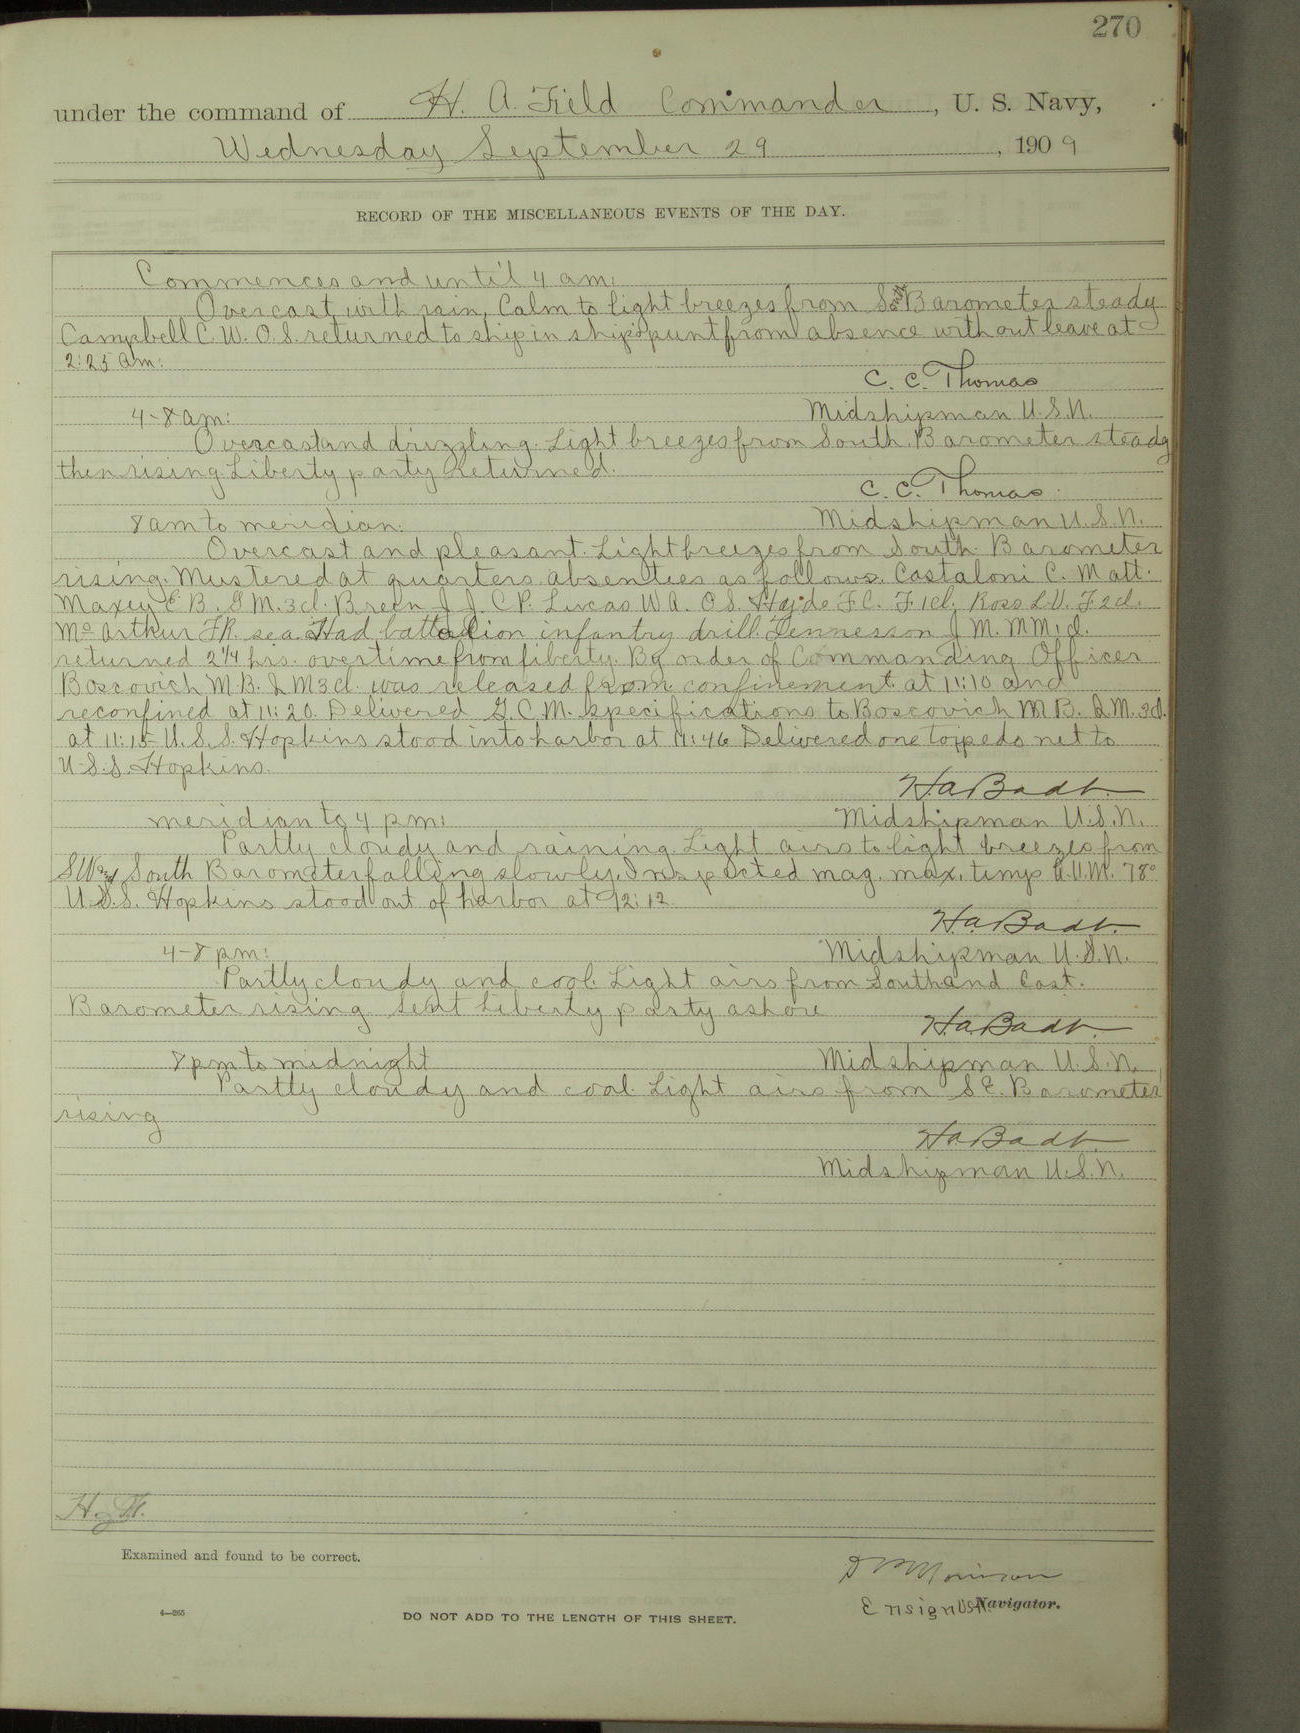 270
under the command of H. A. Field Commander, U. S. Navy,
Wednesday September 29, 1909
RECORD OF THE MISCELLANEOUS EVENTS OF THE DAY.
Commences and until 4 am:
Overcast with rain, Calm to light breezes from South Barometer steady
Campbell C. W. O.S. returned to ship in ship's punt from absence without leave at
2:25 am:
C. C. Thomas
Midshipman U.S.N.
4-8 am:
Overcast and drizzling. Light breezes from South. Barometer steady
then rising. Liberty party returned.
C. C. Thomas
Midshipman U.S.N.
8 am to meridian:
Overcast and pleasant. Light breezes from South. Barometer
rising. Mustered at quarters absentees as follows. Castaloni C. Matt.
Maxey E B. G M. 3cl. Breen J J. C P. Lucas W A. O S. Hyde F.C. F 1cl. Ross L.V. F 2cl.
McArthur F R. sea. Had battalion infantry drill. Tennesson J M. MM 1cl.
returned 2 1/4 hrs. overtime from liberty. By order of Commanding Officer
Boscovich M.B. Q M 3cl. was released from confinement at 11:10 and
reconfined at 11:20. Delivered G.C.M. specifications to Boscovich M B. Q M. 3cl.
at 11:15 U.S.S. Hopkins stood into harbor at 11:46 Delivered one torpedo net to
U.S.S. Hopkins.
H. A. Badt
Midshipman U.S.N.
meridian to 4 pm:
Partly cloudy and raining. Light airs to light breezes from
SW and South Barometer falling slowly. Inspected mag. max. temp. 78°
U.S.S. Hopkins stood out of harbor at 12:12.
H. A. Badt
Midshipman U.S.N.
4-8 pm:
Partly cloudy and cool. Light airs from South and East.
Barometer rising Sent Liberty party ashore
H. A. Badt
Midshipman U.S.N.
8 pm to midnight
Partly cloudy and cool. Light airs from SE. Barometer
rising
H. A. Badt
Midshipman U.S.N.
Examined and found to be correct.
Ensign USN. Navigator.
4—265
DO NOT ADD TO THE LENGTH OF THIS SHEET.